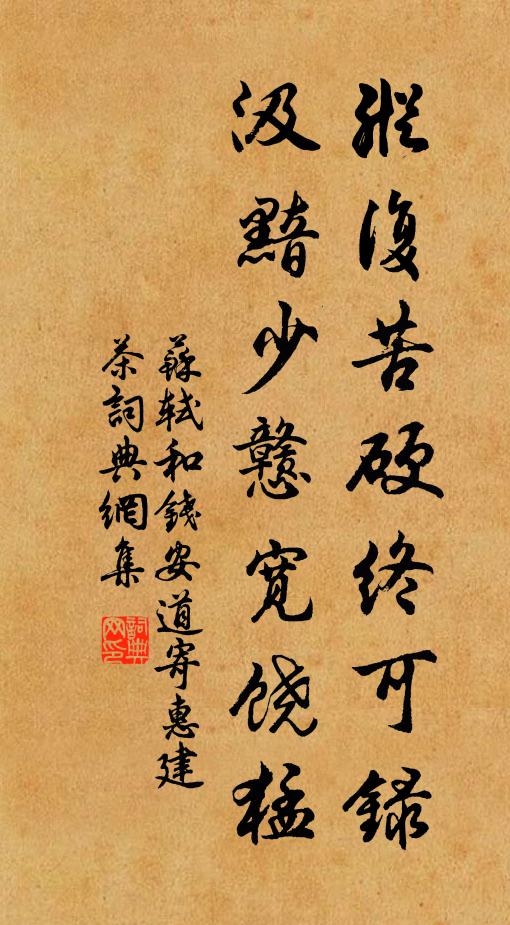 縱復苦硬終可錄
汲黯少戇寬饒猛
蘇軾和錢安道寄惠建
茶詞典網集
詞典網印